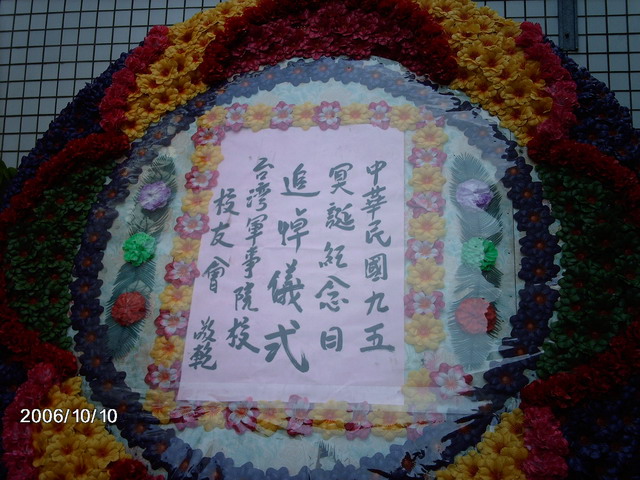 中華民國九五
冥誕紀念日
追悼儀式
台灣軍事院校
校友會
敬輓
2006/10/10